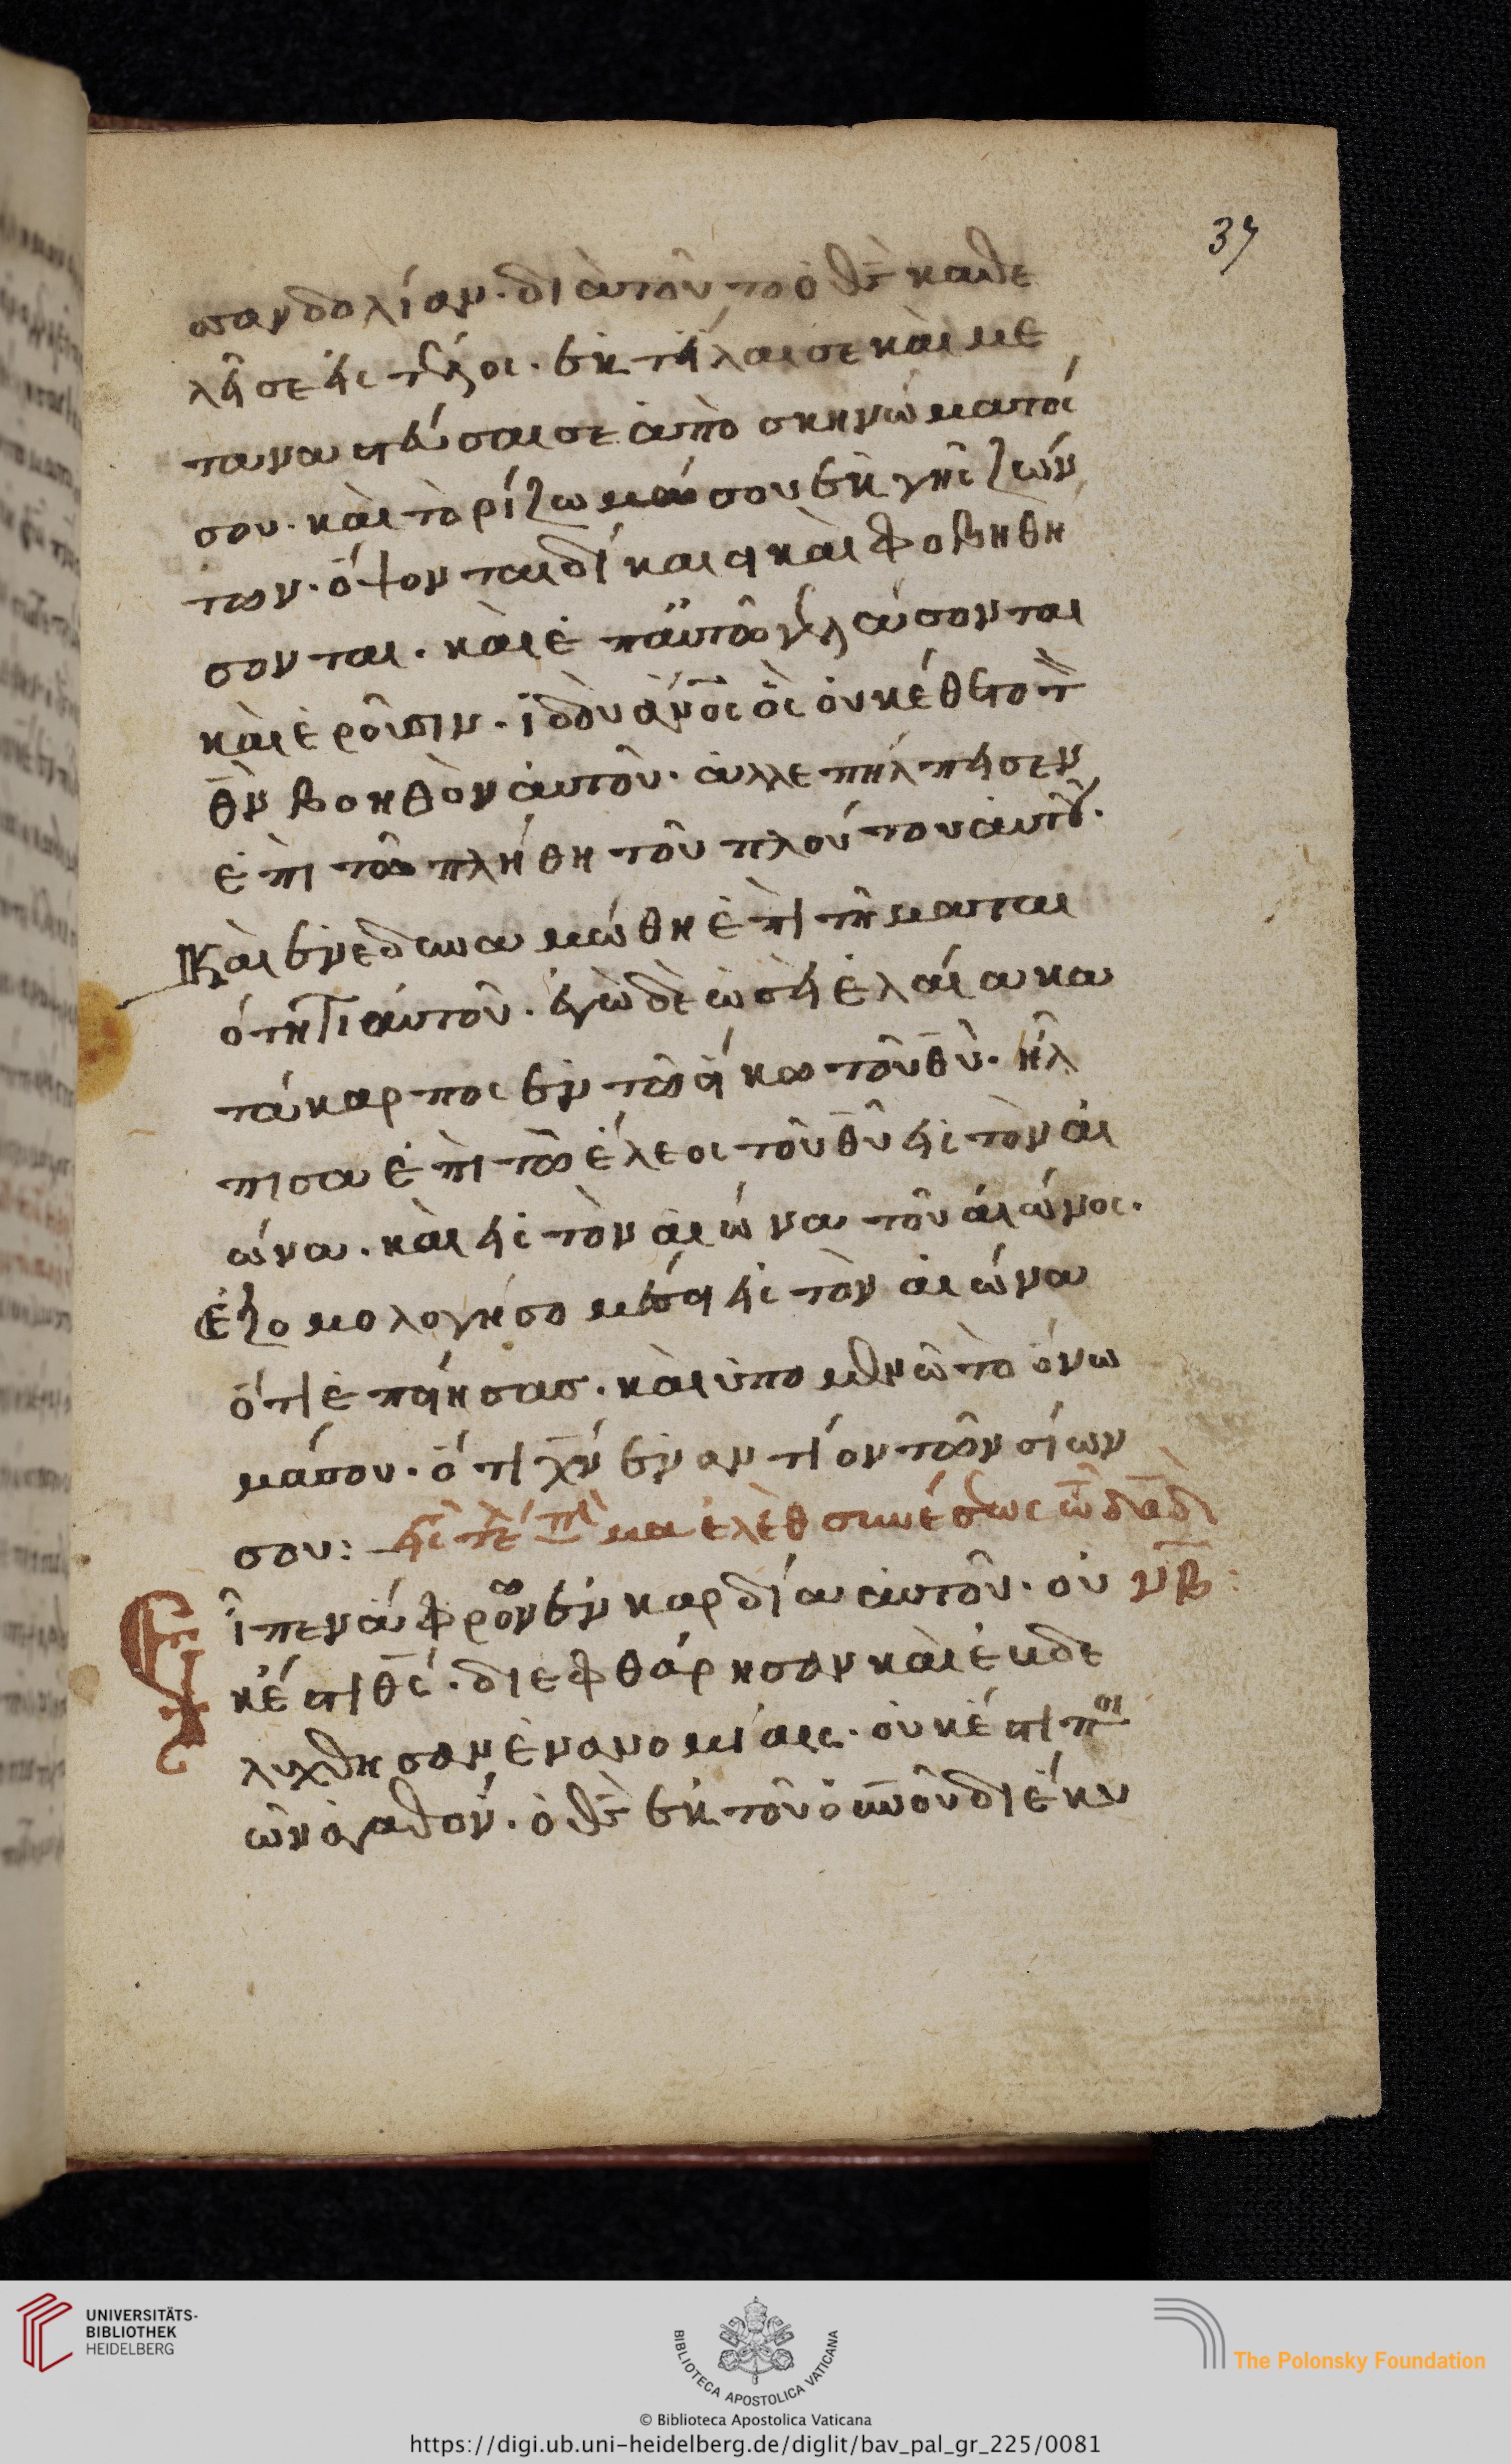 37
σαν δολίαν· διὰ τοῦτο ὁ θς̄ καθε
λῆ σε εἰς τέλος· ἐκτήλαι σε καὶ με
ταναστεύσαι σε ἀπὸ σκηνώματός
σου· καὶ τὸ ρίζωμά σου ἐκ γῆς ζών
των· ὄψονται δίκαιοι καὶ φοβηθή
σονται· καὶ ἐπ αὐτῶ γελάσονται
καὶ ἐροῦσιν· ἰδοὺ ἄνο̄ς ὃς οὐκ έθετο τ
θν̄ βοηθὸν αὐτοῦ· ἀλλ επήλπησεν
ἐπι τῶ πλήθη τοῦ πλούτου αὐτοῦ·
Καὶ ἐνεδυναμώθη ἐπὶ τῆ μαται
ότητι αὐτοῦ· ἐγὼ δὲ ὡσεὶ ἐλαία κα
τάκαρπος ἐν τῶ οίκω τοῦ θῡ· ήλ
πισα ἐπὶ τῶ ἔλεος τοῦ θῡ εἰς τὸν αἰ
ώνα· καὶ εἰς τὸν αἰώνα τοῦ αἰώνος·
Ἐξομολογήσομαί σοι εἰς τὸν αἰώνα
ὅτι ἐποίησας· καὶ ὑπομενῶ τὸ ὄνω
μά σου· ὅτι χρ̄ύ ἐναντίον τῶν οσίων
σου: εἰς τὸ τέ ὑπὲρ μαελὲθ συνέσεως τῶ δᾱδ
Εἶπεν άφρων ἐν καρδία αὐτοῦ· οὐ ν̄β̄:
κ έστι θς̄· διεφθάρησαν καὶ ἐβδε
λύχθησαν ἐν ανομίαις· οὐκ έστι ποι
ῶν ἀγαθόν· ὁ θς̄ ἐκ τοῦ οὐν̄οῦ διέκυ
UNIVERSITÄTS-
BIBLIOTHEK
HEIDELBERG
BIBLIOTECA APOSTOLICA VATICANA
The Polonsky Foundation
© Biblioteca Apostolica Vaticana
https://digi.ub.uni-heidelberg.de/diglit/bav_pal_gr_225/0081